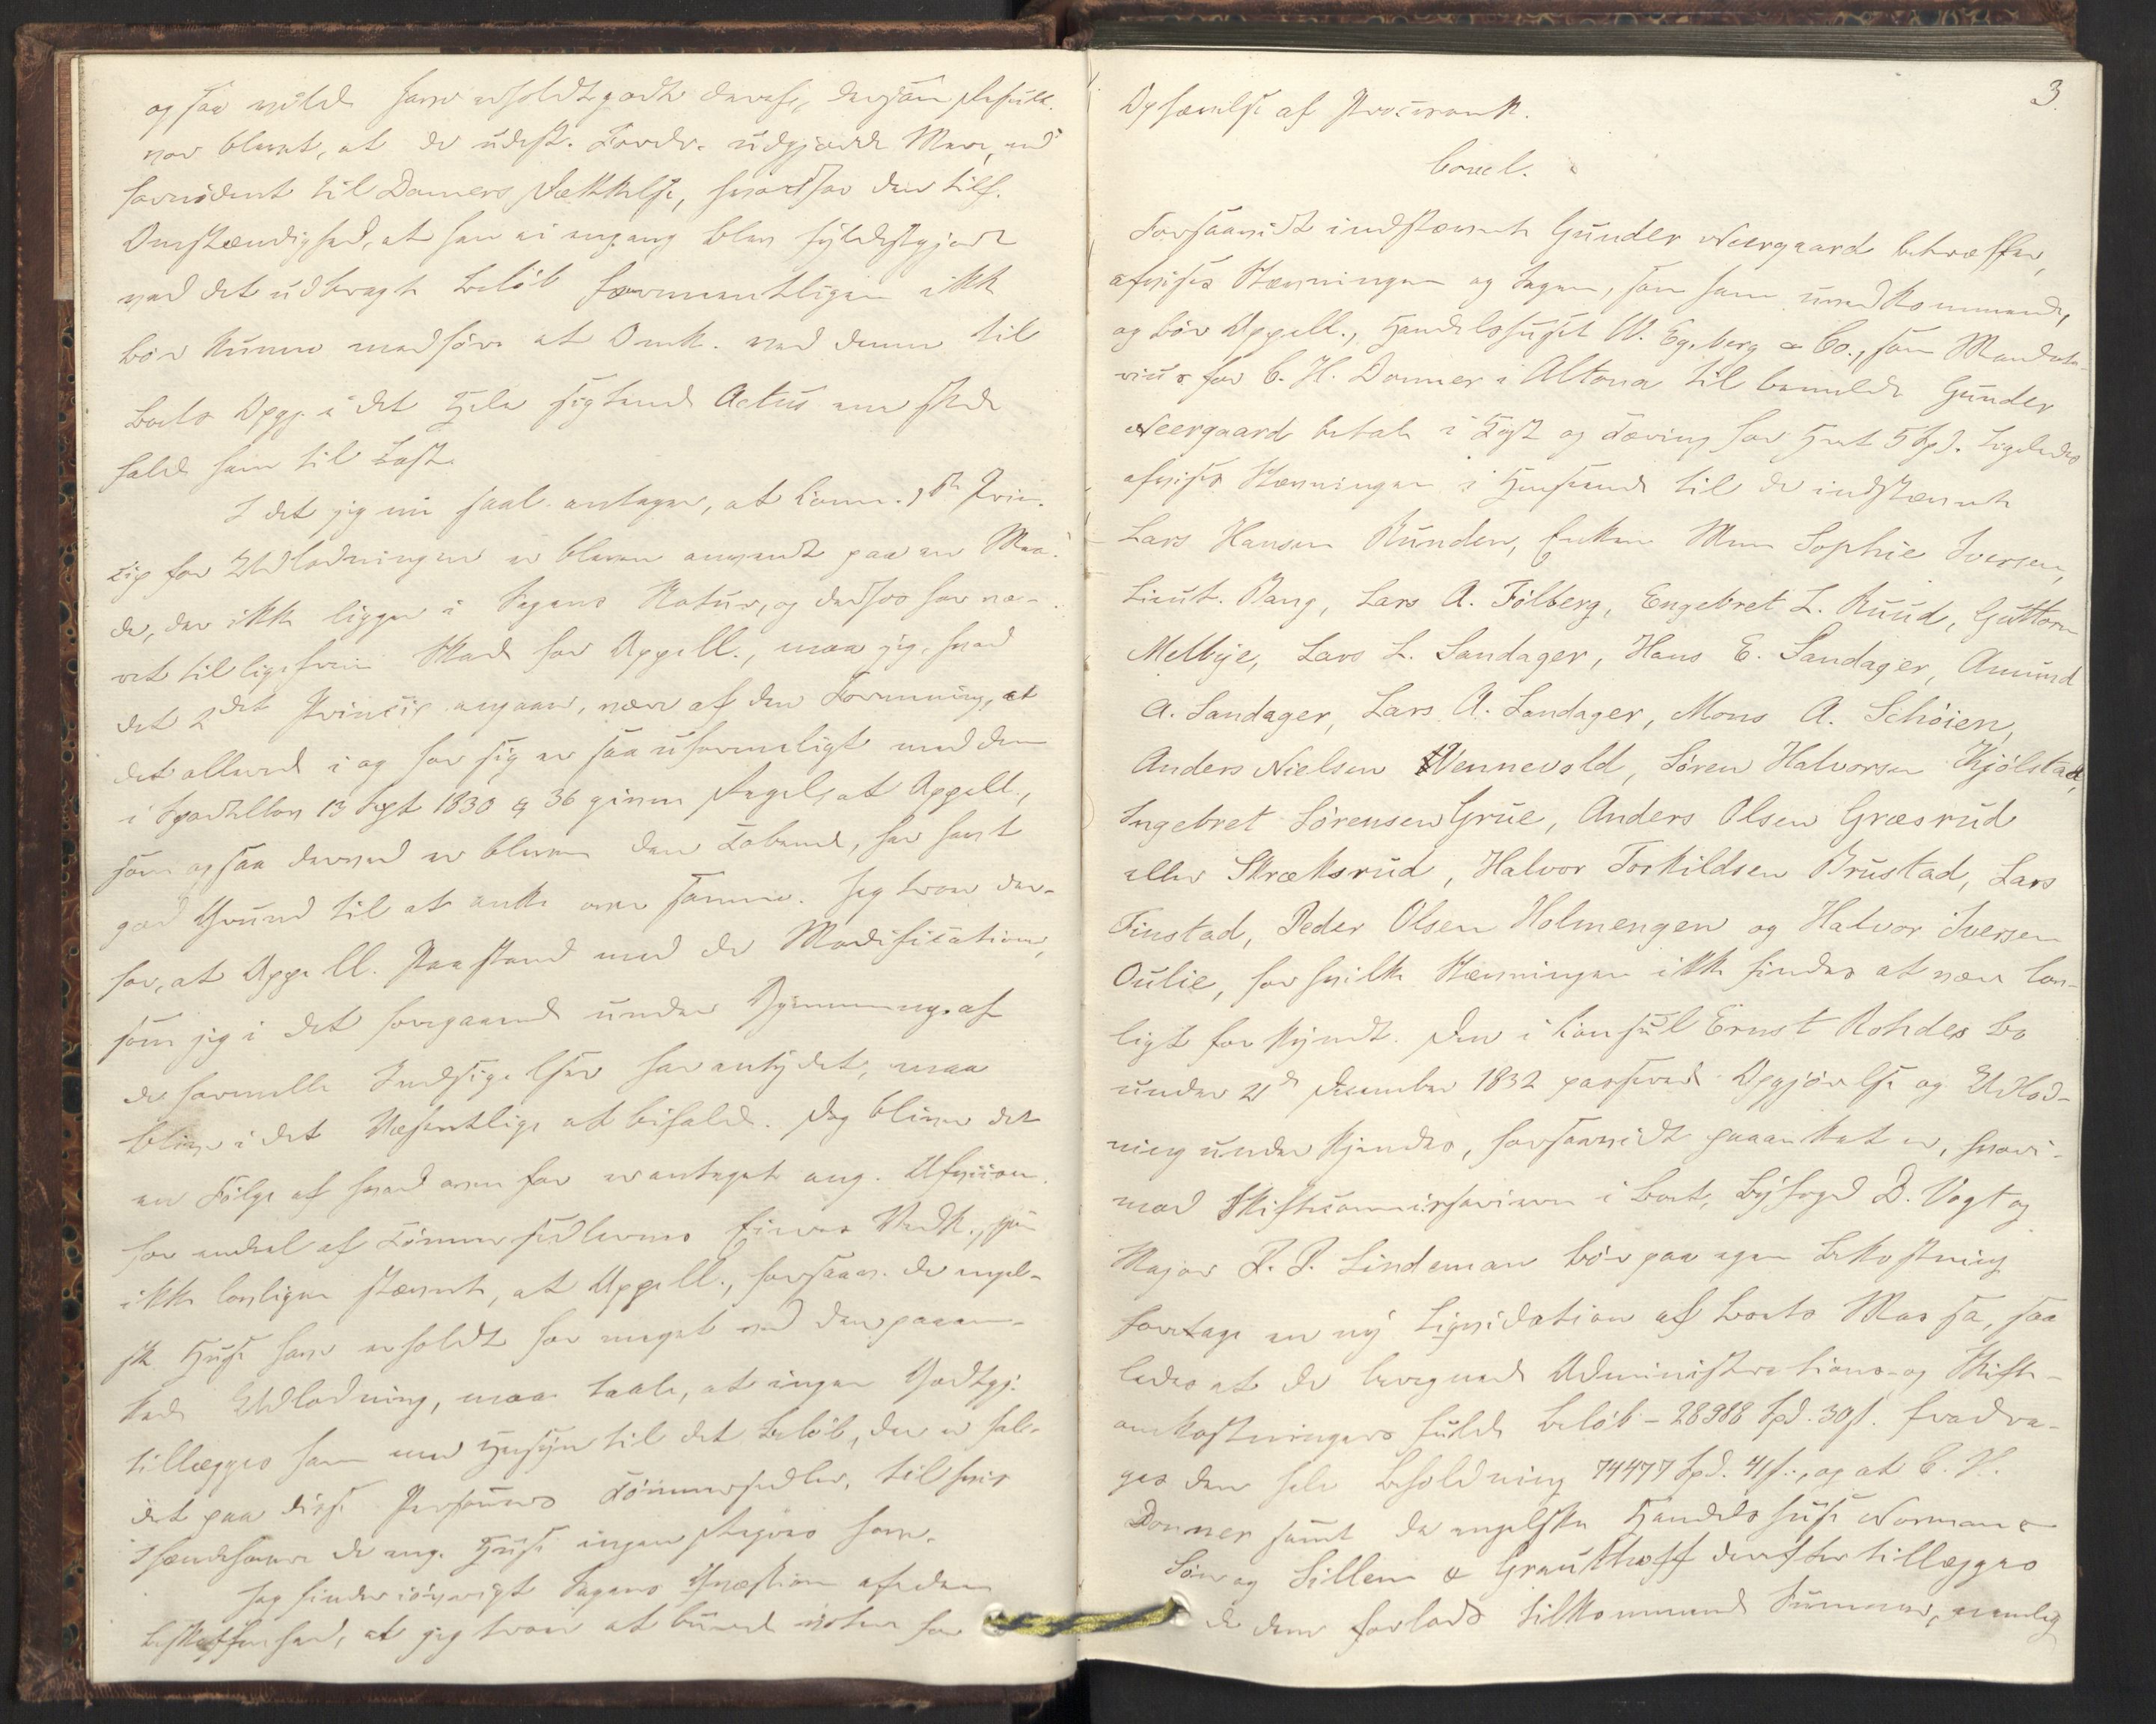 og saa vilde have erholdt godt derefter, dersom Result.
var blevet, at de udest. Fordr. udgjorde Mere, end
fornödent til Donners Dækkelse, hvorfor den tilf.
Omstændighed, at han ei engang blev fyldestgjort
ved det udbragte Belöb formentligen ikke
bör kunne medföre at Omk. ved denne til
Boets Opgj. i det Hele sigtende Actus one skulde
falde ham til Last.
I det jeg nu saal. antager, at Comm. 1ste Prin-
cip for Udlodningen er bleven anvendt paa en Maa-
de, der ikke ligger i Sagens Natur, og derfor har væ-
ret tilligefrem Skade for Appell., maa jeg, hvad
det 2det Princip angaaer, være af den Formening, at
det allerede i og for sig er saa uformeligt med den
i Skiftelov 13 Sept 1830 § 36 givne Regel, at Appell.,
som ogsaa derved er bleven den Tabende, har havt
god Grund til at anke over samme. Jeg troer der-
for, at Appell. Paastand med de Modificationer,
som jeg i det foregaaende under Gjennemgang af
de formelle Indsigelser har antydet, maa
blive i det Væsentlige at bifalde. Dog bliver det
en Fölge af hvad oven for er antaget ang. Afviisn.
for endeel af Tömmersedlernes Eieres Vedk., som
ikke lovligen stævnte, at Appell., forsaav. de engel-
ske Huse have erholdt for meget ved den paaan-
kede Udlodning, maa taale, at ingen Godtgj.
tillægges ham med Hensyn til det Belöb, der er fal-
det paa disse Personers Tömmersedler, til hvis
Ihændehavere de eng. Huse ingen Regres have.
Jeg finder iövrigt Sagens Qvæstion af den
Beskaffenhed, at jeg troer at burde votere for
3.
Ophævelse af Processomk.
Concl.
Forsaavidt indstævnte Gunder Neergaard betræffer,
afvises Stævningen og Sagen, som ham uvedkommende,
og bör Appell., Handelshuset W. Egeberg & Co., som Mandata-
rius for C. H. Donner i Altona til bemeldte Gunder
Neergaard betale i Kost og Tæring for Hret 5 Spd. Ligeledes
afvises Stævningen i Henseende til de indstævnte
Lars Hansen Runden, Enken Mme Sophie Iversen,
Lieut. Bang, Lars A. Fölberg, Engebret L. Ruud, Guttorm
Melbye, Lars L. Sandager, Hans E. Sandager, Amund
A. Sandager, Lars A. Sandager, Mons A. Schöien,
Anders Nielsen Wennevold, Sören Halvorsen Kjölstad,
Ingebret Sörensen Grue, Anders Olsen Græsrud
eller Skræksrud, Halvor Torkildsen Brustad, Lars
Finstad, Peder Olsen Holmengen og Halvor Iversen
Oulie, for hvilke Stævningen ikke findes at være lov-
ligt forkyndt. Den i Consul Ernst Rohdes Bo
under 21de December 1832 passerede Opgjörelse og Udlod-
ning underkjendes, forsaavidt paaanket er, hvori-
mod Skiftecommissarierne i Boet, Byfoged D. Vogt og
Major P. P. Lindeman bör paa egen Bekostning
foretage en ny Liqvidation af Boets Massa, saa
ledes at de beregnede Administrations- og Skifte-
omkostningers fulde Belöb - 28988 Spd. 30 s. fradra-
ges den hele Beholdning 74477 Spd. 41 s., og at C. H.
Donner samt de engelske Handelshuse Norman &
Sön og Sillem & Grauthoff derefter tillægges
de dem forlods tilkommende Summer, nemlig